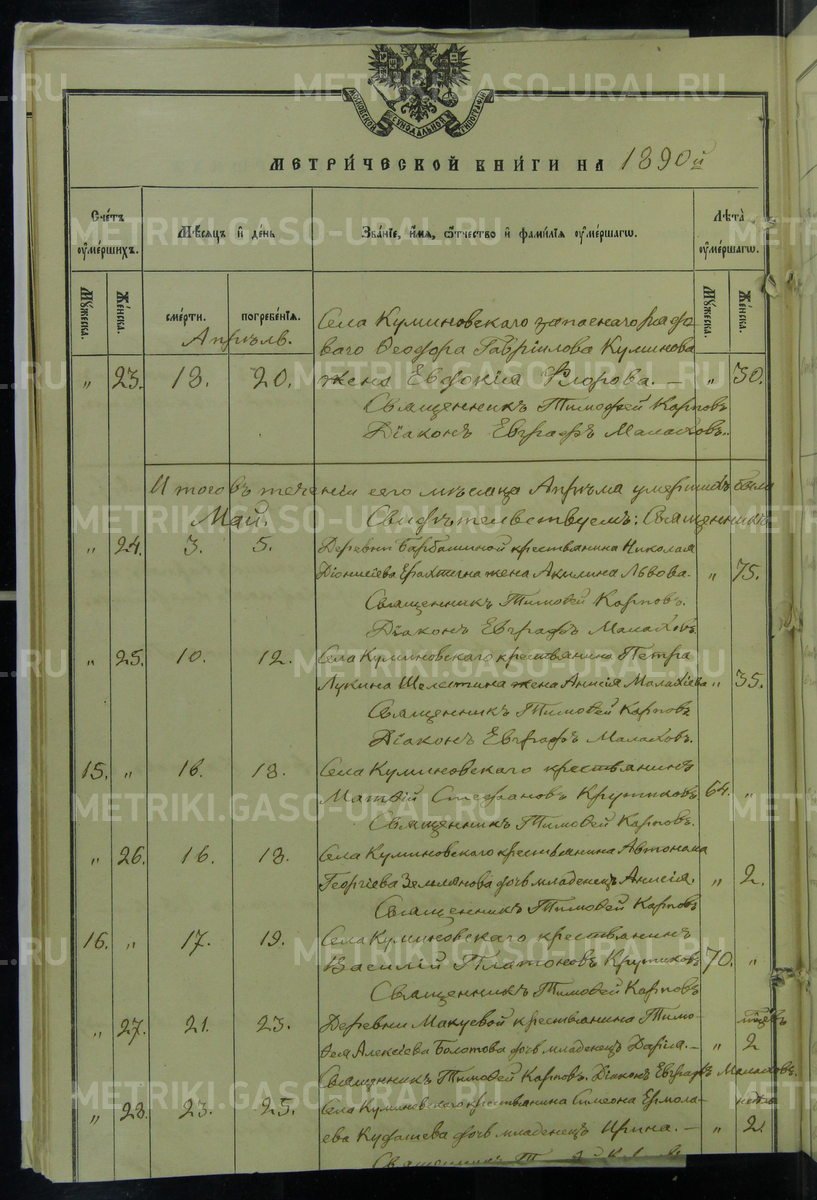 МОСКОВСКОЙ СѴНОДАЛЬНОЙ ТИПОГРАФІИ
МЕТРИ́ЧЕСКОЙ КНИ́ГИ НА 1890й
Сче́тъ ᲂу҆ме́ршихъ.
Мѣ́сяцъ и҆ де́нь
Зва́нїе, и҆́мя, ѻ҆́тчество и҆ фами́лїя ᲂу҆ме́ршагѡ.
Лѣ́та ᲂу҆ме́ршагѡ.
Мꙋ́жеска. Же́нска. сме́рти. погребе́нїя. Мꙋ́жеска. Же́нска.
Апрѣль.
Села Куминовскаго запаснаго рядо-
ваго Ѳеодора Гавріилова Куминова
„ 23. 18. 20. жена Евдокія Флорова. — „ 30.
Священникъ Тимоѳей Карповъ
Діаконъ Евграфъ Малаховъ.
Итого въ теченіи сего мѣсяца Апрѣля умершихъ было
Май. Свидѣтельствуемъ: Священникъ
„ 24. 3. 5. Деревни Барбашиной крестьянина Николая
Діонисіева жена Акилина Львова. „ 75.
Священникъ Тимоѳей Карповъ.
Діаконъ Евграфъ Малаховъ.
„ 25. 10. 12. Села Куминовскаго крестьянина Петра
Лукина Шелестина жена Анисія Малахіева „ 35.
Священникъ Тимоѳей Карповъ
Діаконъ Евграфъ Малаховъ.
15. „ 16. 18. Села Куминовскаго крестьянинъ
Матвій Стефановъ Крутиковъ 64. „
Священникъ Тимоѳей Карповъ.
„ 26. 16. 18. Села Куминовскаго крестьянина Автонома
Георгіева Земляновa дочь младенецъ Анисія. „ 2.
Священникъ Тимоѳей Карповъ
16. „ 17. 19. Села Куминовскаго крестьянинъ
Василій Платоновъ Крутиковъ 70. „
Священникъ Тимоѳей Карповъ
„ 27. 21. 23. Деревни Макуевой крестьянина Тимо- мѣсяцъ
ѳея Алексіева Болотова дочь младенецъ Дарія. — „ 2
Священникъ Тимоѳей Карповъ. Діаконъ Евграфъ Малаховъ.
„ 28. 23. 25. Села Куминовскаго крестьянина Симеона Ермола- недѣл
ева Кудашева дочь младенецъ Ирина. — „ 2.
METRIKI.GASO-URAL.RU